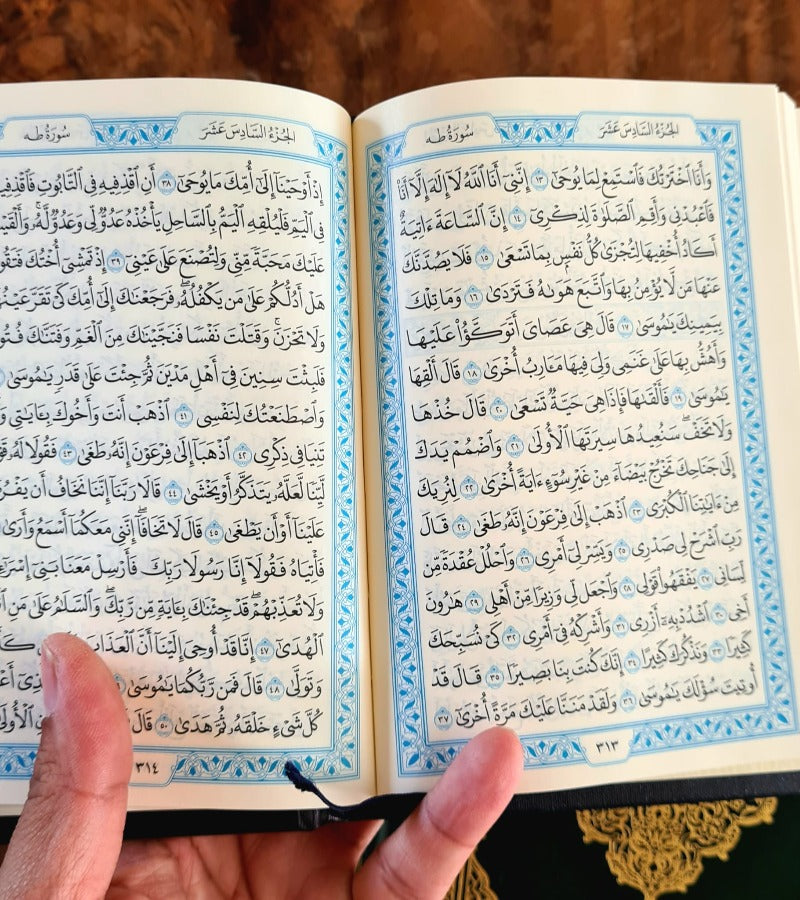 الجُزْءُ السَّادِسَ عَشَرَ
سُورَةُ طه
وَأَنَا ٱخْتَرْتُكَ فَٱسْتَمِعْ لِمَا يُوحَىٰٓ ١٣ إِنَّنِىٓ أَنَا ٱللَّهُ لَآ إِلَٰهَ إِلَّآ أَنَا۠
فَٱعْبُدْنِى وَأَقِمِ ٱلصَّلَوٰةَ لِذِكْرِىٓ ١٤ إِنَّ ٱلسَّاعَةَ ءَاتِيَةٌ
أَكَادُ أُخْفِيهَا لِتُجْزَىٰ كُلُّ نَفْسٍۭ بِمَا تَسْعَىٰ ١٥ فَلَا يَصُدَّنَّكَ
عَنْهَا مَن لَّا يُؤْمِنُ بِهَا وَٱتَّبَعَ هَوَىٰهُ فَتَرْدَىٰ ١٦ وَمَا تِلْكَ
بِيَمِينِكَ يَٰمُوسَىٰ ١٧ قَالَ هِىَ عَصَاىَ أَتَوَكَّؤُا۟ عَلَيْهَا
وَأَهُشُّ بِهَا عَلَىٰ غَنَمِى وَلِىَ فِيهَا مَـَٔارِبُ أُخْرَىٰ ١٨ قَالَ أَلْقِهَا
يَٰمُوسَىٰ ١٩ فَأَلْقَىٰهَا فَإِذَا هِىَ حَيَّةٌ تَسْعَىٰ ٢٠ قَالَ خُذْهَا
وَلَا تَخَفْ ۖ سَنُعِيدُهَا سِيرَتَهَا ٱلْأُولَىٰ ٢١ وَٱضْمُمْ يَدَكَ
إِلَىٰ جَنَاحِكَ تَخْرُجْ بَيْضَآءَ مِنْ غَيْرِ سُوٓءٍ ءَايَةً أُخْرَىٰ ٢٢ لِنُرِيَكَ
مِنْ ءَايَٰتِنَا ٱلْكُبْرَى ٢٣ ٱذْهَبْ إِلَىٰ فِرْعَوْنَ إِنَّهُۥ طَغَىٰ ٢٤ قَالَ
رَبِّ ٱشْرَحْ لِى صَدْرِى ٢٥ وَيَسِّرْ لِىٓ أَمْرِى ٢٦ وَٱحْلُلْ عُقْدَةً مِّن
لِّسَانِى ٢٧ يَفْقَهُوا۟ قَوْلِى ٢٨ وَٱجْعَل لِّى وَزِيرًا مِّنْ أَهْلِى ٢٩ هَٰرُونَ
أَخِى ٣٠ ٱشْدُدْ بِهِۦٓ أَزْرِى ٣١ وَأَشْرِكْهُ فِىٓ أَمْرِى ٣٢ كَىْ نُسَبِّحَكَ
كَثِيرًا ٣٣ وَنَذْكُرَكَ كَثِيرًا ٣٤ إِنَّكَ كُنتَ بِنَا بَصِيرًا ٣٥ قَالَ قَدْ
أُوتِيتَ سُؤْلَكَ يَٰمُوسَىٰ ٣٦ وَلَقَدْ مَنَنَّا عَلَيْكَ مَرَّةً أُخْرَىٰٓ ٣٧
٣١٣
الجُزْءُ السَّادِسَ عَشَرَ
سُورَةُ طه
إِذْ أَوْحَيْنَآ إِلَىٰٓ أُمِّكَ مَا يُوحَىٰٓ ٣٨ أَنِ ٱقْذِفِيهِ فِى ٱلتَّابُوتِ فَٱقْذِفِيهِ
فِى ٱلْيَمِّ فَلْيُلْقِهِ ٱلْيَمُّ بِٱلسَّاحِلِ يَأْخُذْهُ عَدُوٌّ لِّى وَعَدُوٌّ لَّهُۥ ۚ
عَلَيْكَ مَحَبَّةً مِّنِّى وَلِتُصْنَعَ عَلَىٰ عَيْنِىٓ ٣٩ إِذْ تَمْشِىٓ أُخْتُكَ
هَلْ أَدُلُّكُمْ عَلَىٰ مَن يَكْفُلُهُۥ ۖ فَرَجَعْنَٰكَ إِلَىٰٓ أُمِّكَ كَىْ تَقَرَّ
وَلَا تَحْزَنَ ۚ وَقَتَلْتَ نَفْسًا فَنَجَّيْنَٰكَ مِنَ ٱلْغَمِّ وَفَتَنَّٰكَ
فَلَبِثْتَ سِنِينَ فِىٓ أَهْلِ مَدْيَنَ ثُمَّ جِئْتَ عَلَىٰ قَدَرٍ يَٰمُوسَىٰ
وَٱصْطَنَعْتُكَ لِنَفْسِى ٤١ ٱذْهَبْ أَنتَ وَأَخُوكَ بِـَٔايَٰتِى
تَنِيَا فِى ذِكْرِى ٤٢ ٱذْهَبَآ إِلَىٰ فِرْعَوْنَ إِنَّهُۥ طَغَىٰ ٤٣ فَقُولَا لَهُۥ
لَّيِّنًا لَّعَلَّهُۥ يَتَذَكَّرُ أَوْ يَخْشَىٰ ٤٤ قَالَا رَبَّنَآ إِنَّنَا نَخَافُ أَن
عَلَيْنَآ أَوْ أَن يَطْغَىٰ ٤٥ قَالَ لَا تَخَافَآ ۖ إِنَّنِى مَعَكُمَآ أَسْمَعُ وَأَرَىٰ
فَأْتِيَاهُ فَقُولَآ إِنَّا رَسُولَا رَبِّكَ فَأَرْسِلْ مَعَنَا بَنِىٓ
وَلَا تُعَذِّبْهُمْ ۖ قَدْ جِئْنَٰكَ بِـَٔايَةٍ مِّن رَّبِّكَ ۖ وَٱلسَّلَٰمُ عَلَىٰ مَنِ
ٱلْهُدَىٰٓ ٤٧ إِنَّا قَدْ أُوحِىَ إِلَيْنَآ أَنَّ ٱلْعَذَابَ
وَتَوَلَّىٰ ٤٨ قَالَ فَمَن رَّبُّكُمَا يَٰمُوسَىٰ
كُلَّ شَىْءٍ خَلْقَهُۥ ثُمَّ هَدَىٰ ٥٠ قَالَ
٣١٤